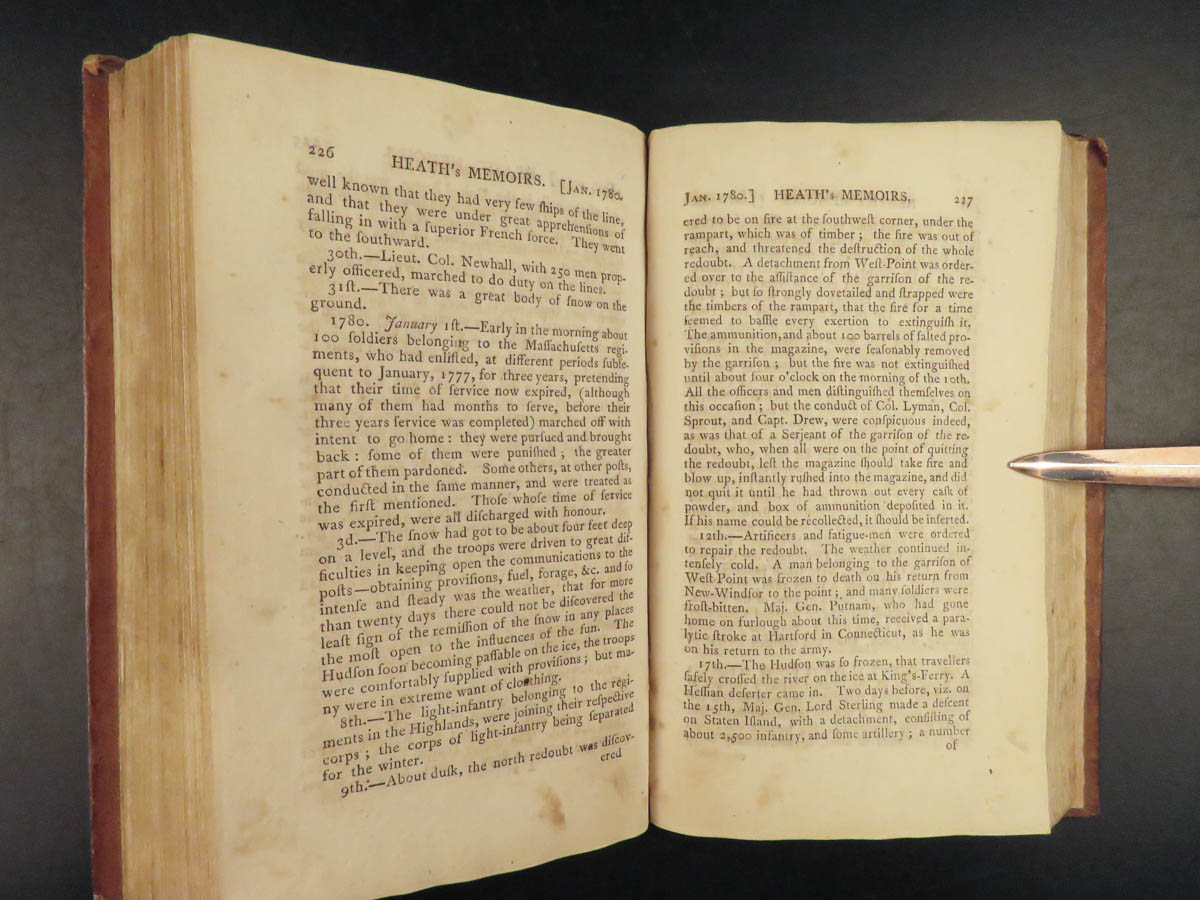 226 HEATH's MEMOIRS. [JAN. 1780.
well known that they had very few ſhips of the line,
and that they were under great apprehenſions of
falling in with a ſuperior French force. They went
to the ſouthward.
30th.—Lieut. Col. Newhall, with 250 men prop-
erly officered, marched to do duty on the lines.
31ſt.—There was a great body of ſnow on the
ground.
1780. January 1ſt.—Early in the morning about
100 ſoldiers belonging to the Maſſachuſetts regi-
ments, who had enliſted, at different periods ſubſe-
quent to January, 1777, for three years, pretending
that their time of ſervice now expired, (although
many of them had months to ſerve, before their
three years ſervice was completed) marched off with
intent to go home: they were purſued and brought
back: ſome of them were puniſhed; the greater
part of them pardoned. Some others, at other poſts,
conducted in the ſame manner, and were treated as
the firſt mentioned. Thoſe whoſe time of ſervice
was expired, were all diſcharged with honour.
3d.—The ſnow had got to be about four feet deep
on a level, and the troops were driven to great dif-
ficulties in keeping open the communications to the
poſts—obtaining proviſions, fuel, forage, &c. and ſo
intenſe and ſteady was the weather, that for more
than twenty days there could not be diſcovered the
leaſt ſign of the remiſſion of the ſnow in any places
the moſt open to the influences of the ſun. The
Hudſon ſoon becoming paſſable on the ice, the troops
were comfortably ſupplied with proviſions; but ma-
ny were in extreme want of clothing.
8th.—The light-infantry belonging to the regi-
ments in the Highlands, were joining their reſpective
corps; the corps of light-infantry being ſeparated
for the winter.
9th.—About duſk, the north redoubt was diſcov-
ered
JAN. 1780.] HEATH's MEMOIRS. 227
ered to be on fire at the ſouthweſt corner, under the
rampart, which was of timber; the fire was out of
reach, and threatened the deſtruction of the whole
redoubt. A detachment from Weſt-Point was order-
ed over to the aſſiſtance of the garriſon of the re-
doubt; but ſo ſtrongly dovetailed and ſtrapped were
the timbers of the rampart, that the fire for a time
ſeemed to baffle every exertion to extinguiſh it.
The ammunition, and about 100 barrels of ſalted pro-
viſions in the magazine, were ſeaſonably removed
by the garriſon; but the fire was not extinguiſhed
until about four o'clock on the morning of the 10th.
All the officers and men diſtinguiſhed themſelves on
this occaſion; but the conduct of Col. Lyman, Col.
Sprout, and Capt. Drew, were conſpicuous indeed,
as was that of a Serjeant of the garriſon of the re-
doubt, who, when all were on the point of quitting
the redoubt, leſt the magazine ſhould take fire and
blow up, inſtantly ruſhed into the magazine, and did
not quit it until he had thrown out every caſk of
powder, and box of ammunition depoſited in it.
If his name could be recollected, it ſhould be inſerted.
12th.—Artificers and fatigue-men were ordered
to repair the redoubt. The weather continued in-
tenſely cold. A man belonging to the garriſon of
Weſt-Point was frozen to death on his return from
New-Windſor to the point; and many ſoldiers were
froſt-bitten. Maj. Gen. Putnam, who had gone
home on furlough about this time, received a para-
lytic ſtroke at Hartford in Connecticut, as he was
on his return to the army.
17th.—The Hudſon was ſo frozen, that travellers
ſafely croſſed the river on the ice at King's-Ferry. A
Heſſian deſerter came in. Two days before, viz. on
the 15th, Maj. Gen. Lord Sterling made a deſcent
on Staten Iſland, with a detachment, conſiſting of
about 2,500 infantry, and ſome artillery; a number
of